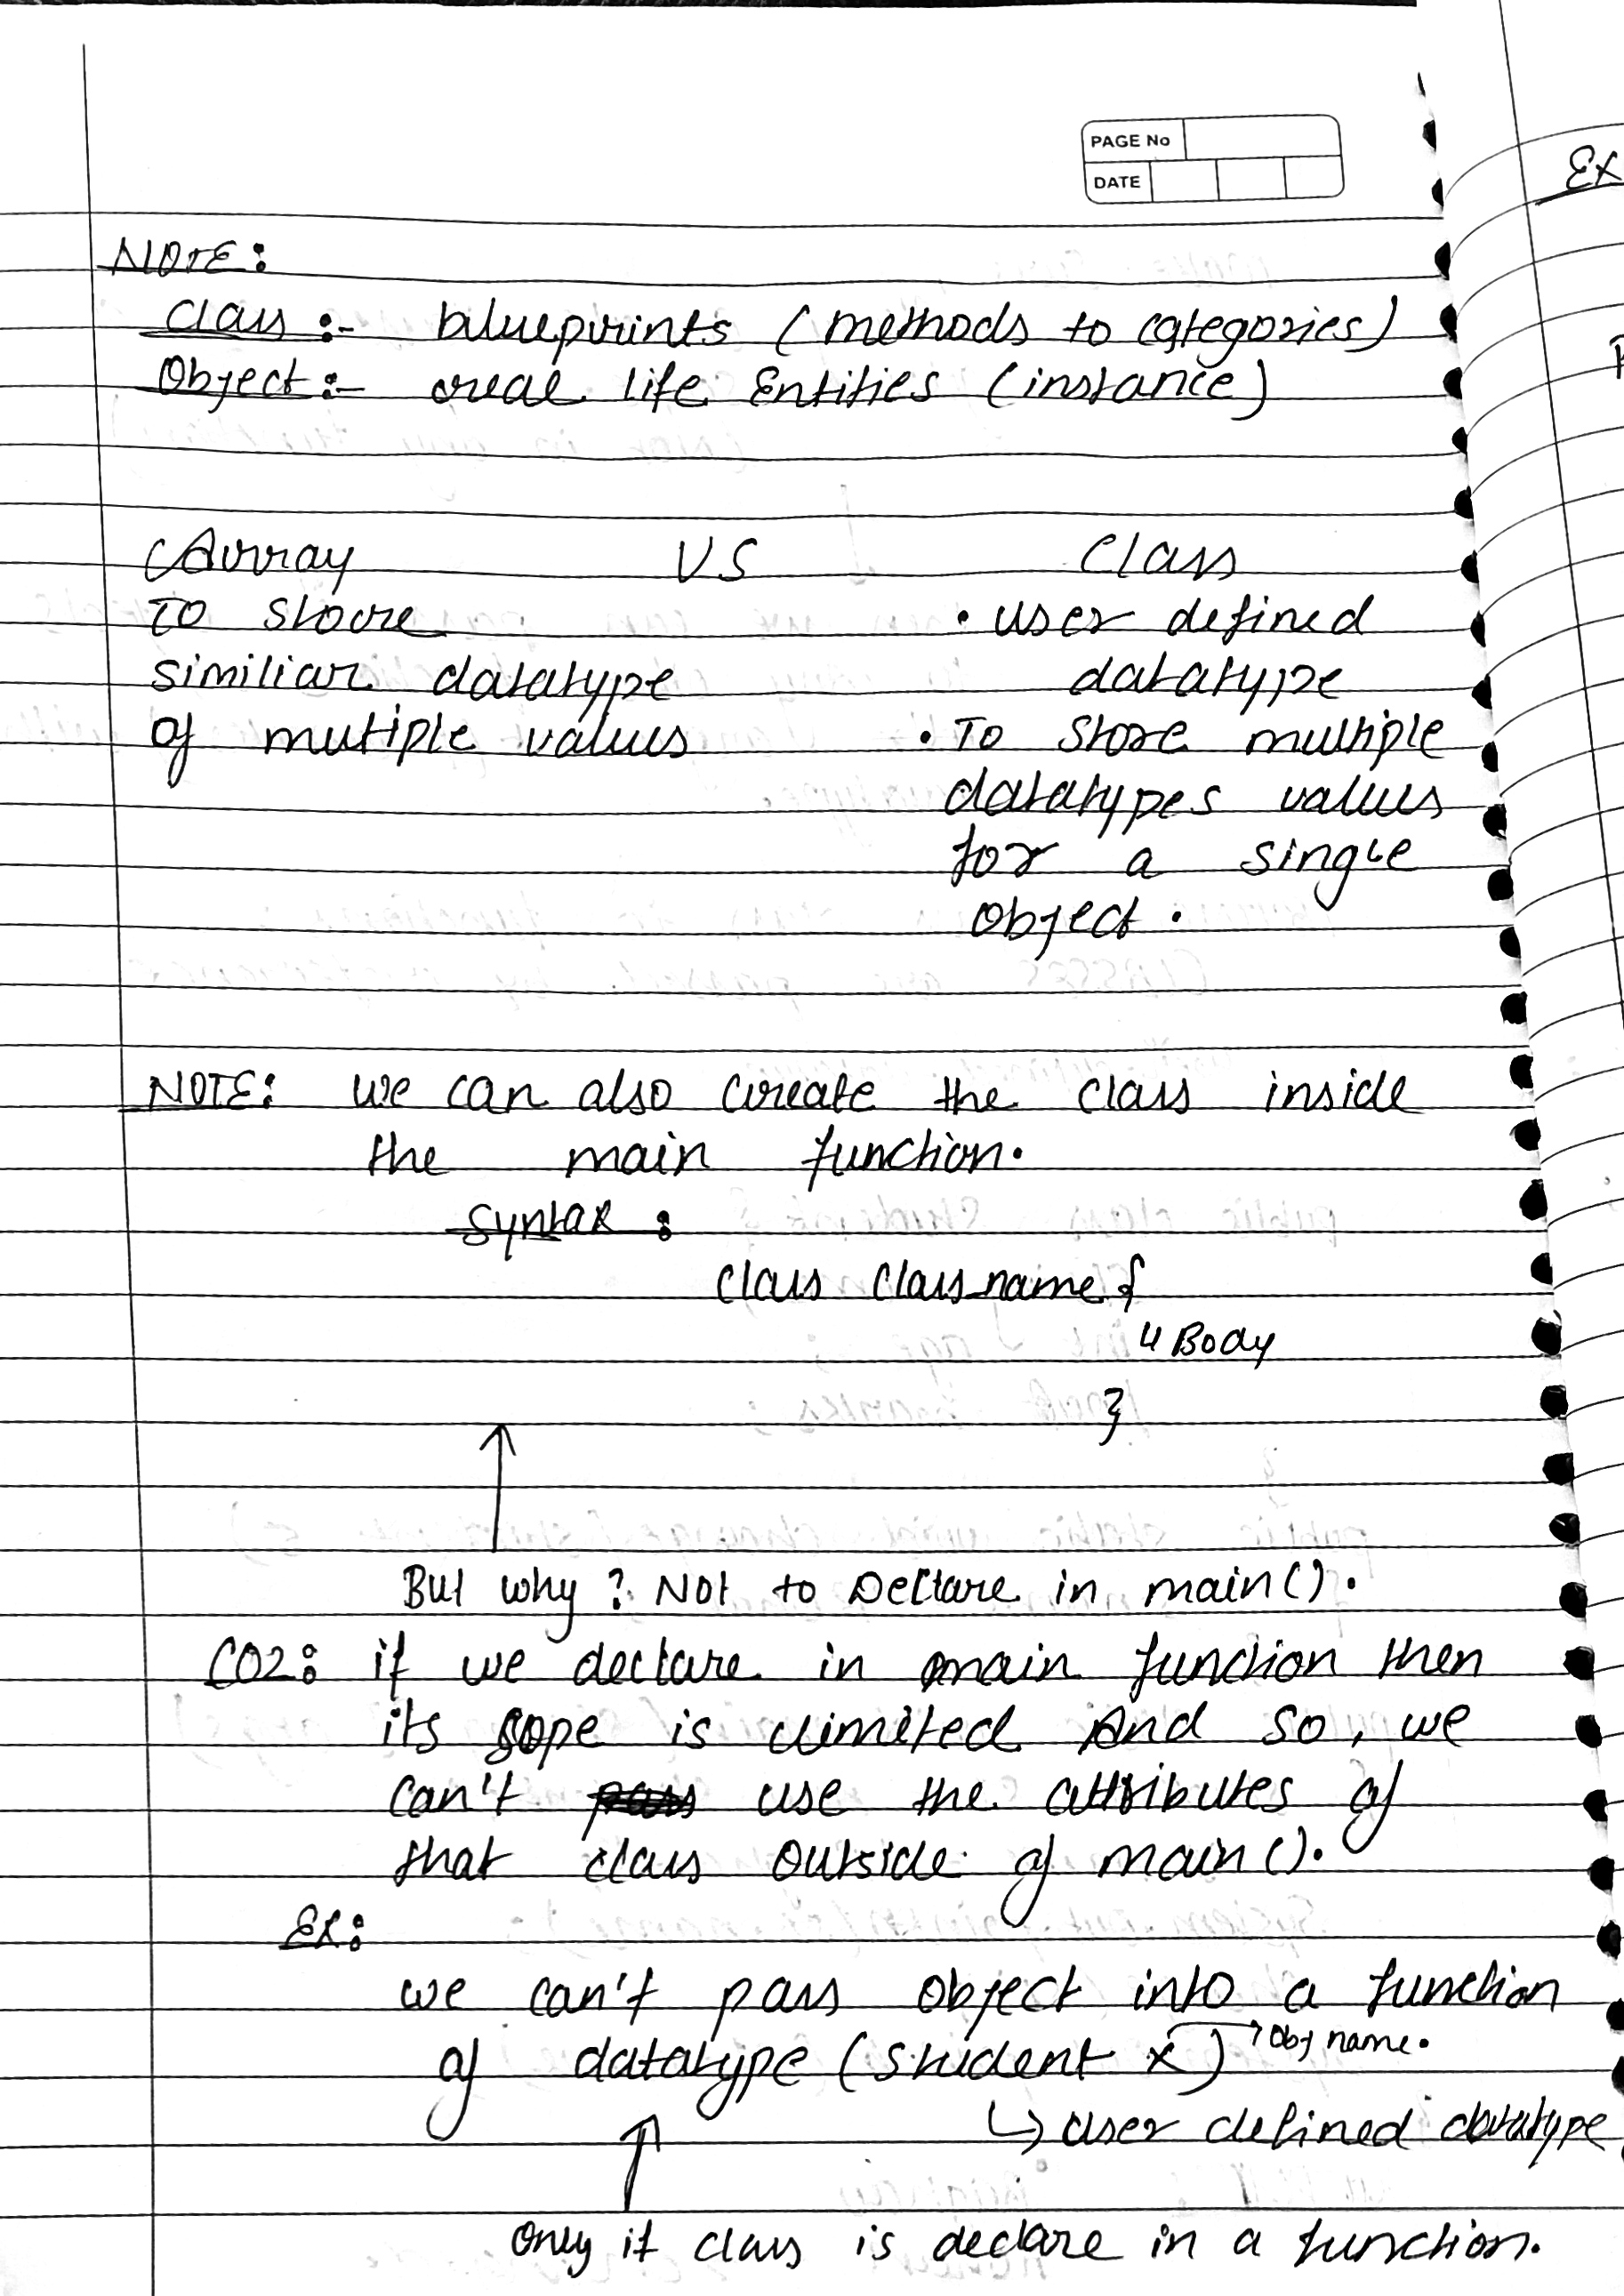 PAGE No
DATE
Ex
NOTE:
Class :- blueprints (methods to categories)
Object :- real life Entities (instance)
Array VS Class
To store • user defined
similiar datatype datatype
of mutiple values • To store multiple
datatypes values
for a single
object.
NOTE: we can also create the class inside
the main function.
Syntax :
class Classname {
// Body
}
But why? Not to Declare in main().
COZ: if we declare in main function then
its sope is limited And so, we
can't use the attributes of
that class outside of main().
Ex:
we can't pass object into a function
of datatype (student x) → Obj name.
↳ user defined datatype
Only if class is declare in a function.